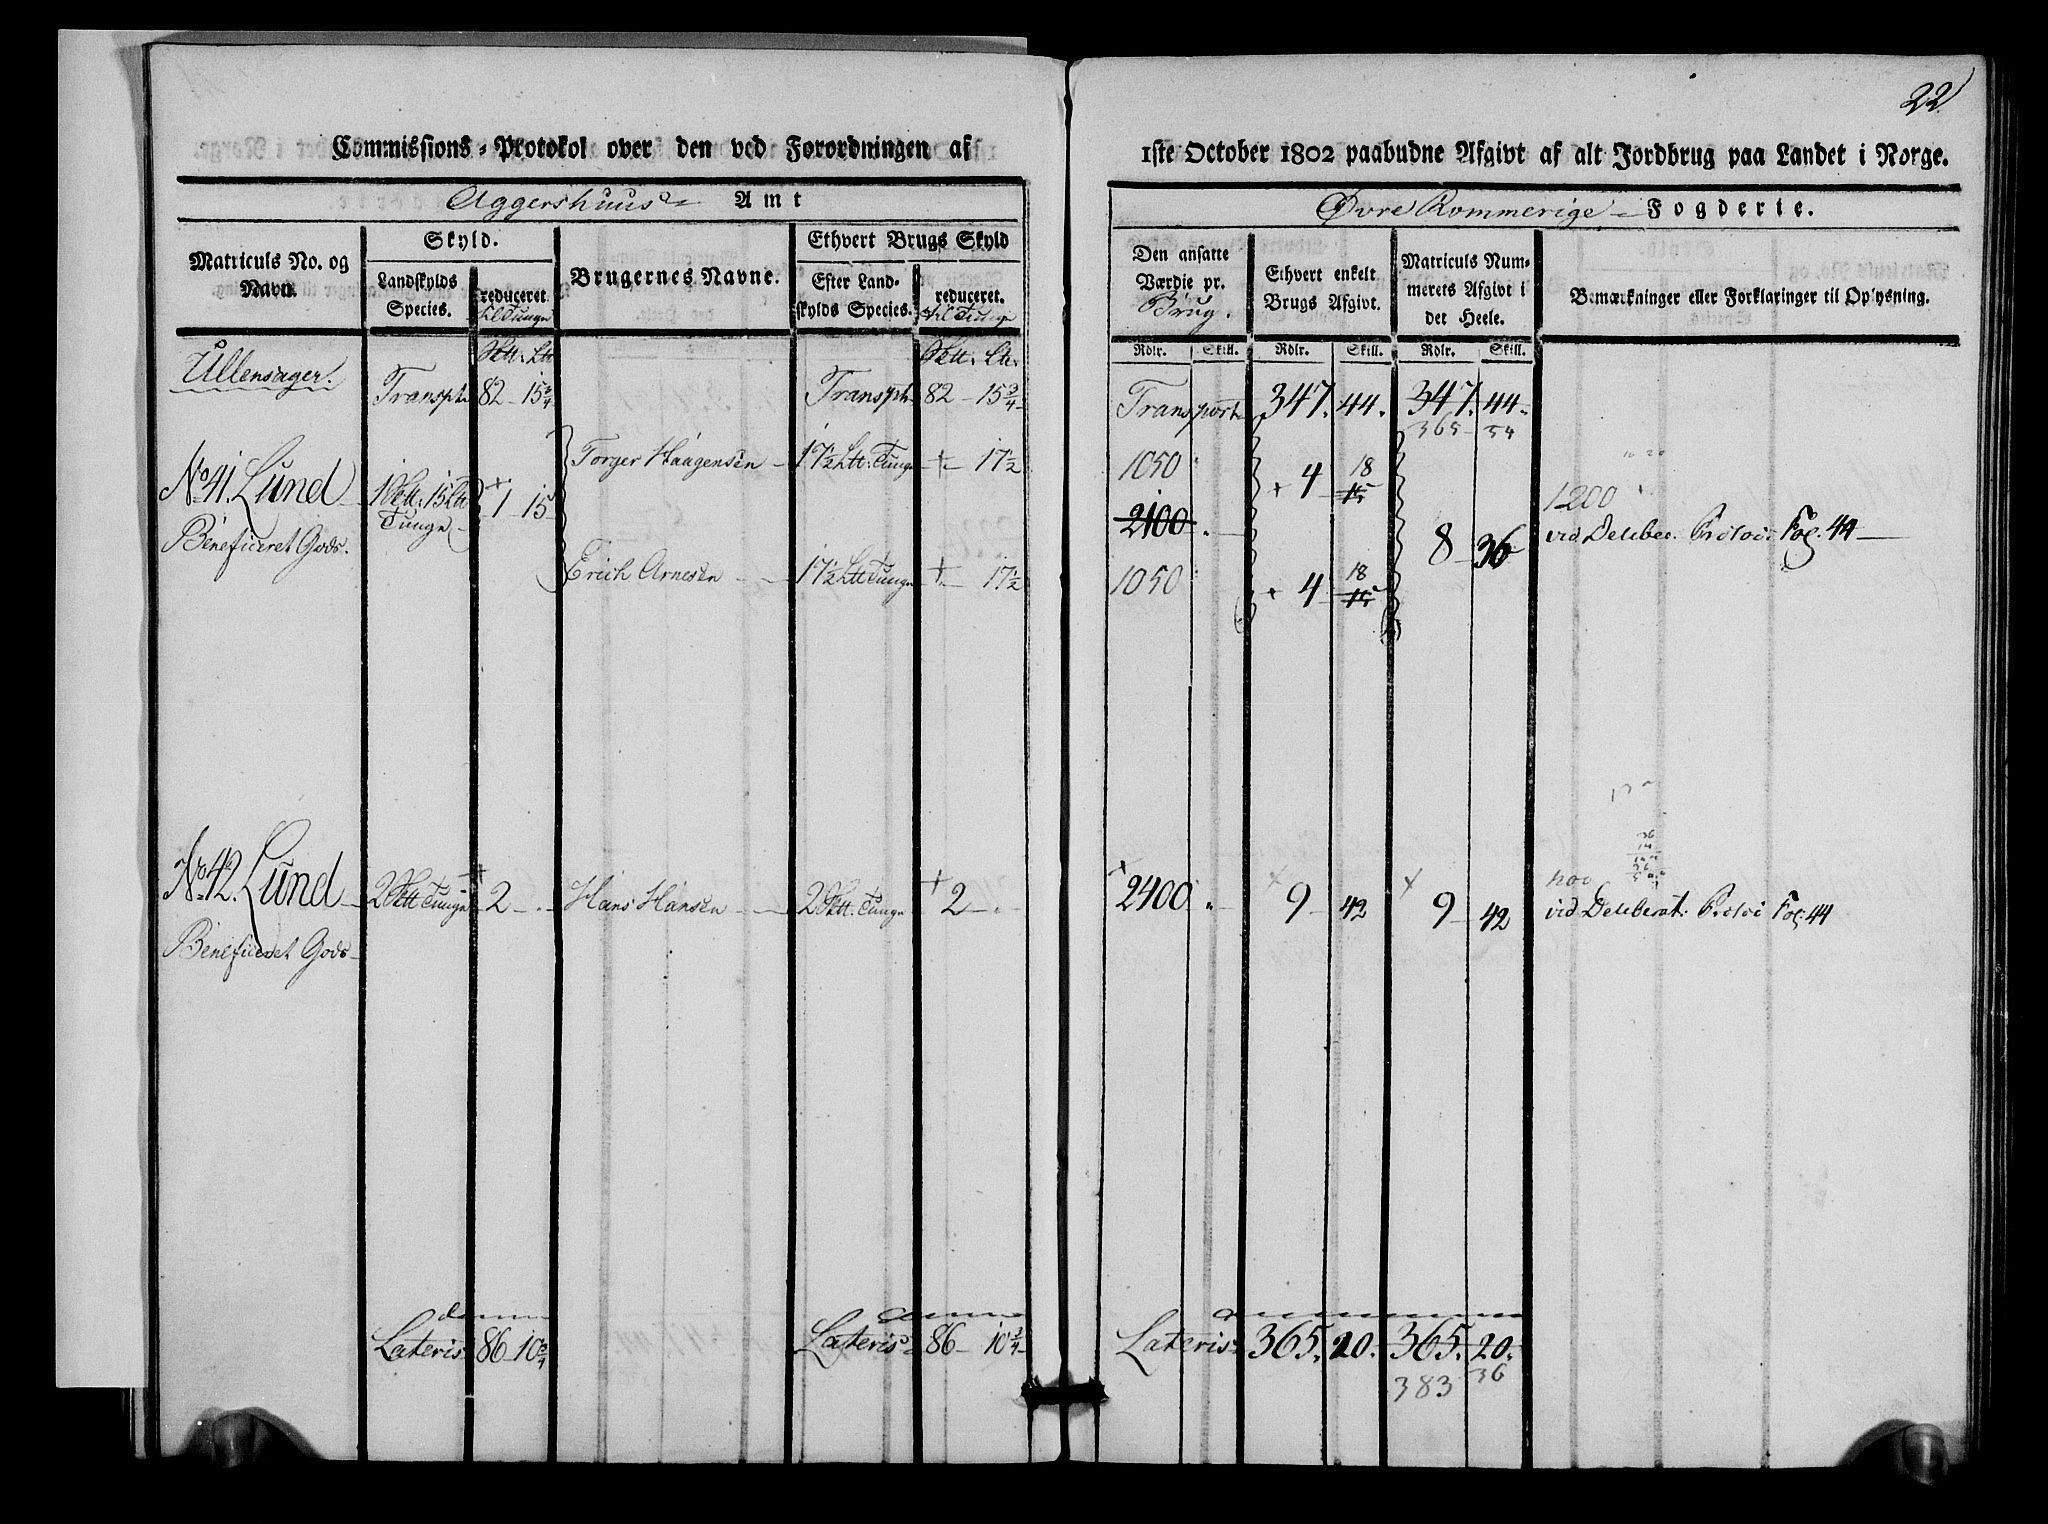 22
Commissions-Protokol over den ved Forordningen af
1ste October 1802 paabudne Afgivt af alt Jordbrug paa Landet i Norge.
Aggershuus Amt
Øvre Rommerige Fogderie.
Matriculs No. og Navn.
Skyld.
Landskylds Species.
reduceret til Tunge
Brugernes Navne.
Ethvert Brugs Skyld
Efter Landskylds Species.
reduceret. til Tunge
Den ansatte Værdie pr. Brug.
Ethvert enkelt Brugs Afgivt.
Matriculs Nummerets Afgivt i det Heele.
Bemærkninger eller Forklaringer til Oplysning.
Rdlr. Skill. Rdlr. Skill. Rdlr. Skill.
Ullensager.
Transpt 82 - 15 3/4
Transpt 82 - 15 3/4
Transport 347. 44. 347. 44.
365 - 54
No 41. Lund 1 15 Tunge 1 15
Beneficeret Gods.
Torger Haagensen 17 1/2 Tunge 17 1/2
1050 4 18 15
2100 8 36
1200
vid Deliber. Protoc: Fol. 44
Erich Arnesen 17 1/2 Tunge 17 1/2
1050 4 18 15
No 42. Lund 2 Tunge 2
Beneficeret Gods
Hans Hansen 2 Tunge 2
2400 9 42 9 42
vid Deliberat: Protoc Fol: 44
Lateris 86 10 3/4
Lateris 86 10 3/4
Lateris 365. 20. 365. 20.
383 36